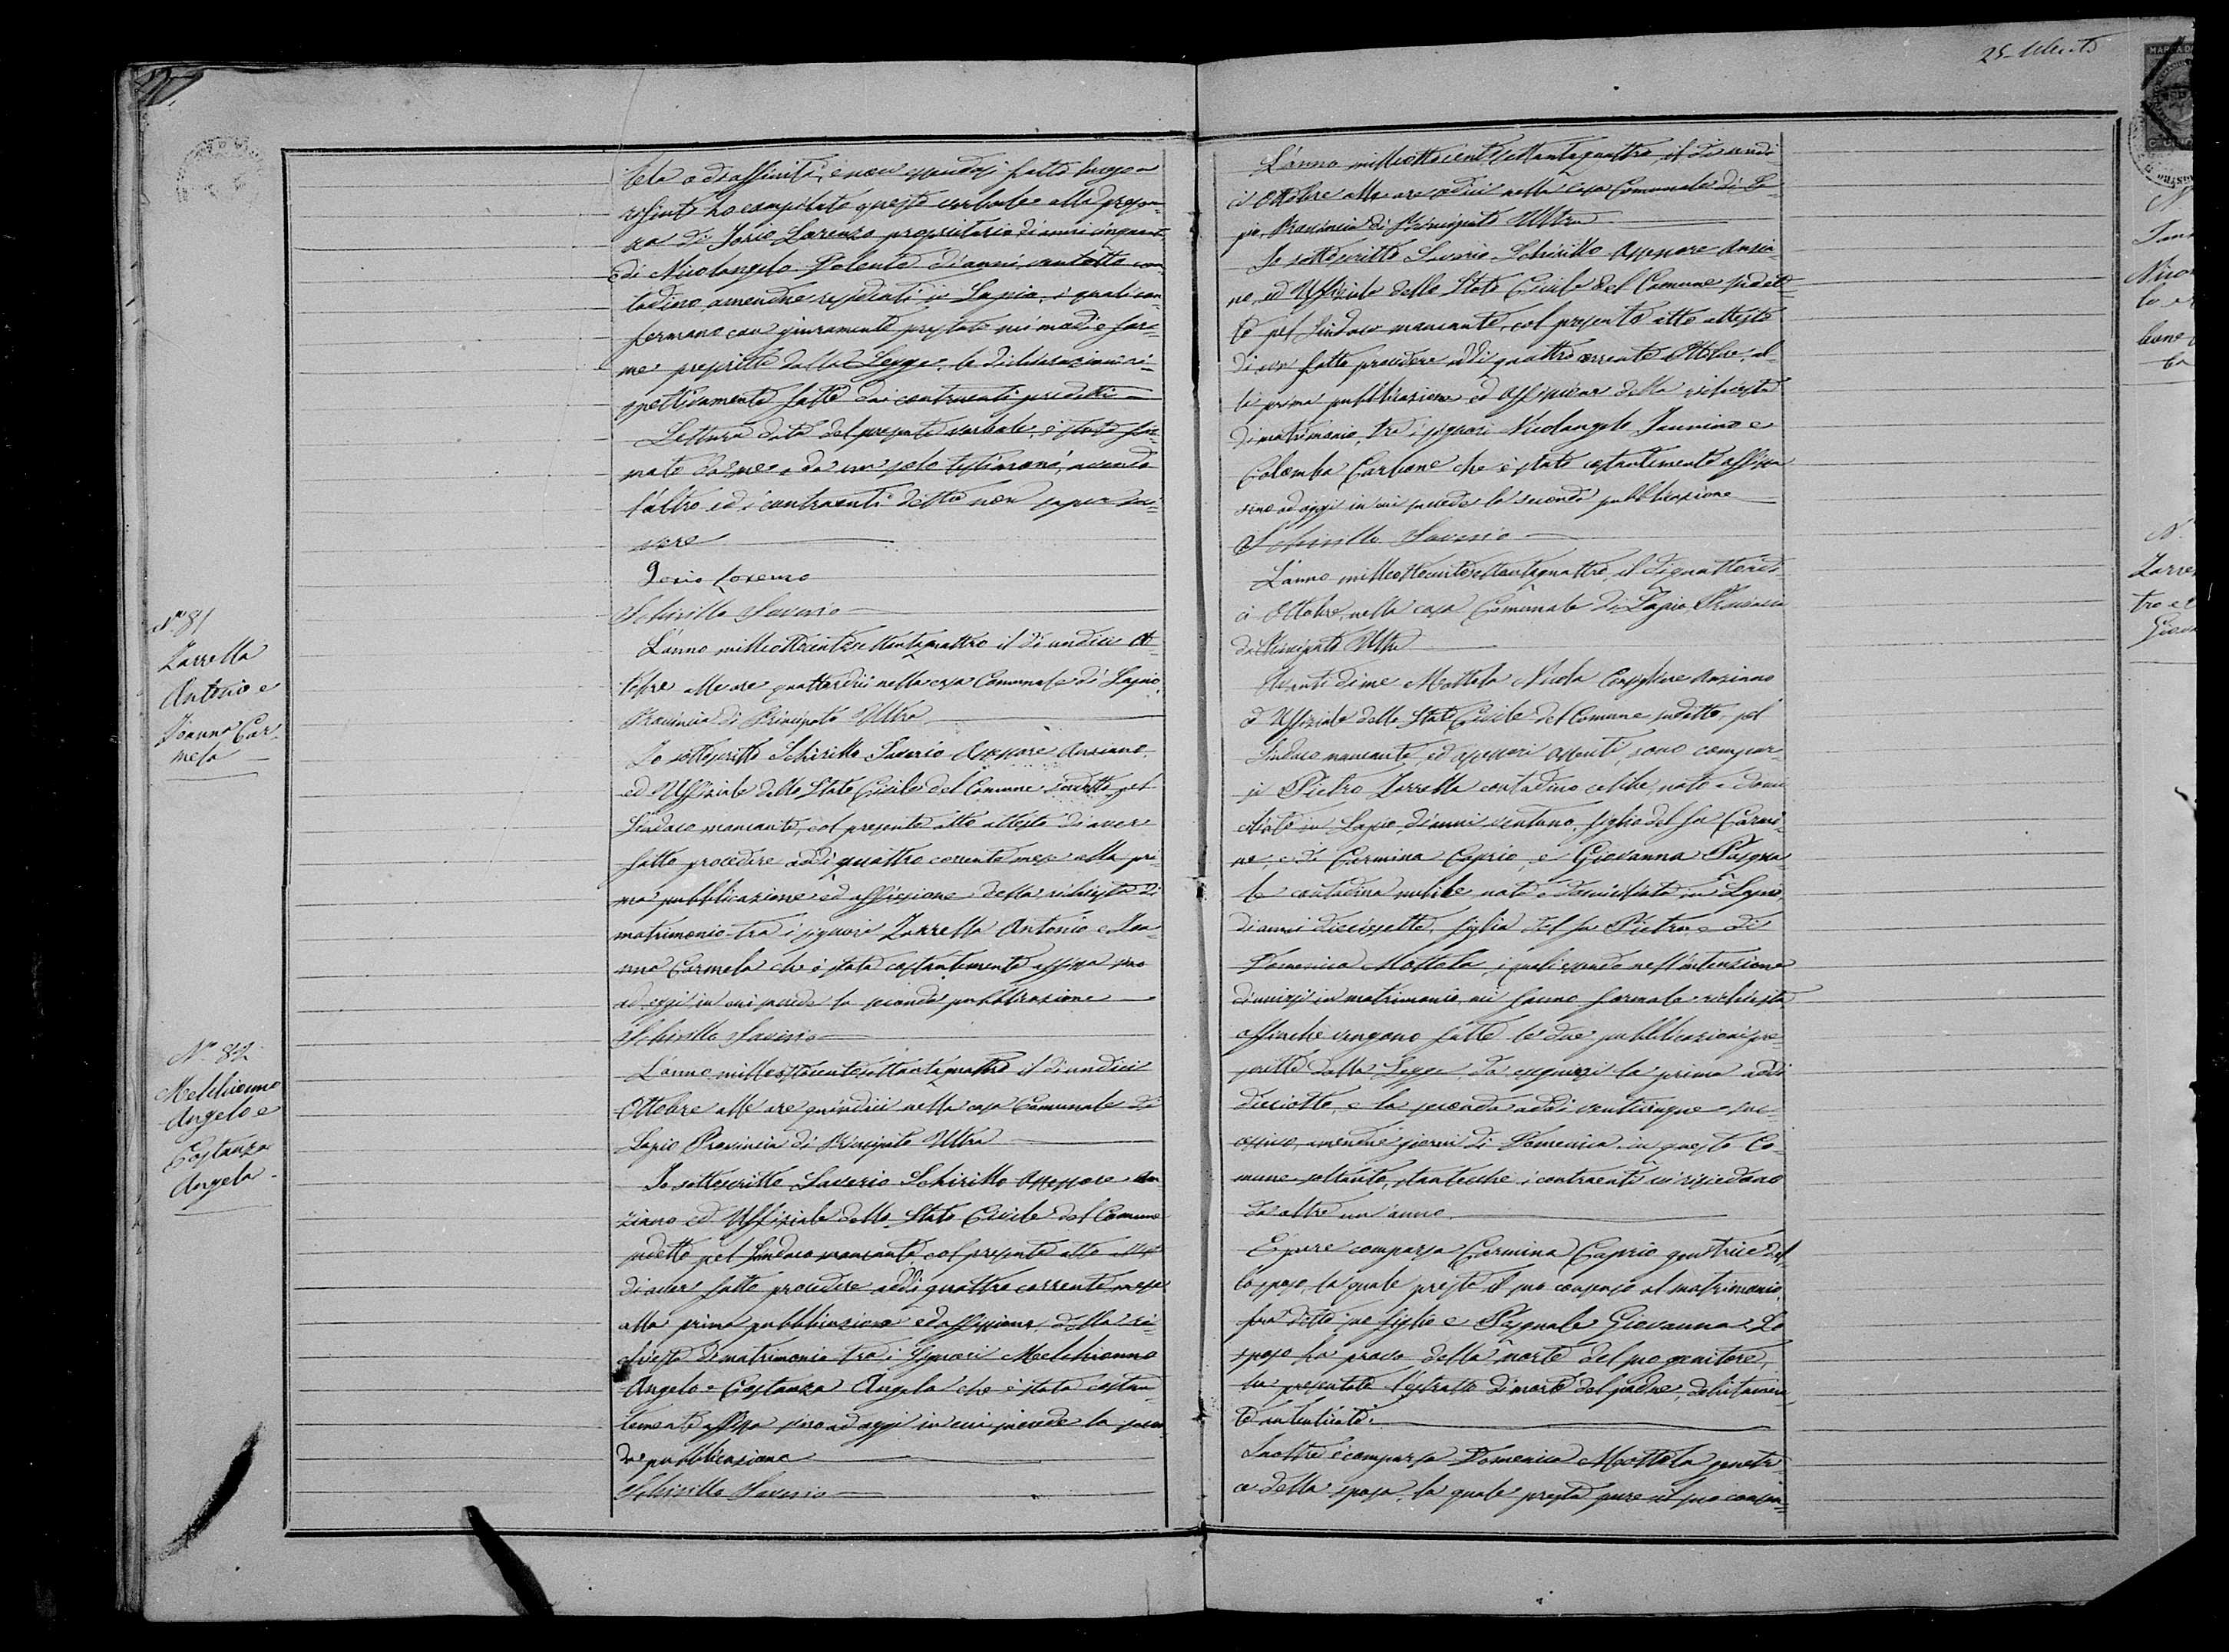 25
tela o di affinità, e non essendosi fatto luogo a
rifiuto ho compilato questo verbale alla presen-
za di Jorio Lorenzo proprietario di anni cinquant
e di Nicolangelo Polente di anni ventotto con-
tadino, amendue residenti in Lapio, i quali con-
fermano con giuramento prestato nei modi e for-
me prescritte dalla Legge, le dichiarazioni ri-
spettivamente fatte dai contraenti predetti
Lettura data del presente verbale, è stato fir-
mato da me e da un solo testimone, avendo
l'altro ed i contraenti detto non saper scri-
vere
Jorio Lorenzo
Schirillo Saverio
N° 81
Zarrella
Antonio e
Joanna Car-
mela
L'anno milleottocentosettantaquattro il dì undici Ot-
tobre alle ore quattordici nella casa Comunale di Lapio,
Provincia di Principato Ultra
Io sottoscritto Schirillo Saverio Assessore Anziano
ed Uffiziale dello Stato Civile del Comune sudetto pel
Sindaco mancante, col presente atto attesto di aver
fatto procedere addì quattro corrente mese alla pri-
ma pubblicazione ed affissione della richiesta di
matrimonio tra i signori Zarrella Antonio e Joan-
na Carmela che è stata costantemente affissa sino
ad oggi in cui succede la seconda pubblicazione
Schirillo Saverio
N° 82
Melchionno
Angelo e
Costanza
Angela
L'anno milleottocentosettantaquattro il dì undici
Ottobre alle ore quindici nella casa Comunale di
Lapio Provincia di Principato Ultra
Io sottoscritto Saverio Schirillo Assessore An-
ziano ed Uffiziale dello Stato Civile del Comune
sudetto pel Sindaco mancante, col presente atto attesto
di aver fatto procedere addì quattro corrente mese
alla prima pubblicazione ed affissione della ri-
chiesta di matrimonio tra i Signori Melchionno
Angelo e Costanza Angela che è stata costan-
temente affissa sino ad oggi in cui succede la secon-
da pubblicazione
Schirillo Saverio
L'anno milleottocentosettantaquattro il dì undi-
ci Ottobre alle ore sedici nella casa Comunale di La-
pio, Provincia di Principato Ultra
Io sottoscritto Saverio Schirillo Assessore Anzia-
no, ed Uffiziale dello Stato Civile del Comune sudett-
to pel Sindaco mancante, col presente atto attesto
di aver fatto procedere addì quattro corrente Ottobre, al-
la prima pubblicazione ed affissione della richiesta
di matrimonio, tra i signori Nicolangelo Jannino e
Colomba Carbone che è stata costantemente affissa
sino ad oggi in cui succede la seconda pubblicazione
Schirillo Saverio
L'anno milleottocentosettantaquattro, il dì quattordi-
ci Ottobre, nella casa Comunale di Lapio Provincia
di Principato Ultra
Avanti di me Mottola Nicola Consigliere Anziano
ed Uffiziale dello Stato Civile del Comune sudetto, pel
Sindaco mancante, ed assessori assenti, sono compar-
si Pietro Zarrella contadino celibe, nato e domi-
ciliato in Lapio, di anni ventuno, figlio del fu Carmi-
ne, e di Carmina Caprio, e Giovanna Pasqua-
le contadina nubile nata e domiciliata in Lapio,
di anni diecissette, figlia del fu Pietro e di
Domenica Mottola, i quali essendo nell'intenzione
di unirsi in matrimonio, mi fanno formale richiesta,
affinché vengano fatte le due pubblicazioni pre-
scritte dalla Legge, da eseguirsi la prima addì
dieciotto, e la seconda addì venticinque suc-
cessivo, amendue giorni di Domenica in questo Co-
mune soltanto, stanteché i contraenti vi risiedono
da oltre un anno.
È pure comparsa Carmina Caprio genitrice del-
lo sposo, la quale presta il suo consenso al matrimonio
fra detto suo figlio e Pasquale Giovanna. Lo
sposo ha prova della morte del suo genitore,
ha presentato l'estratto di morte del padre, debitamen-
te autenticato.
Inoltre è comparsa Domenica Mottola genitri-
ce della sposa, la quale presta pure il suo consen-